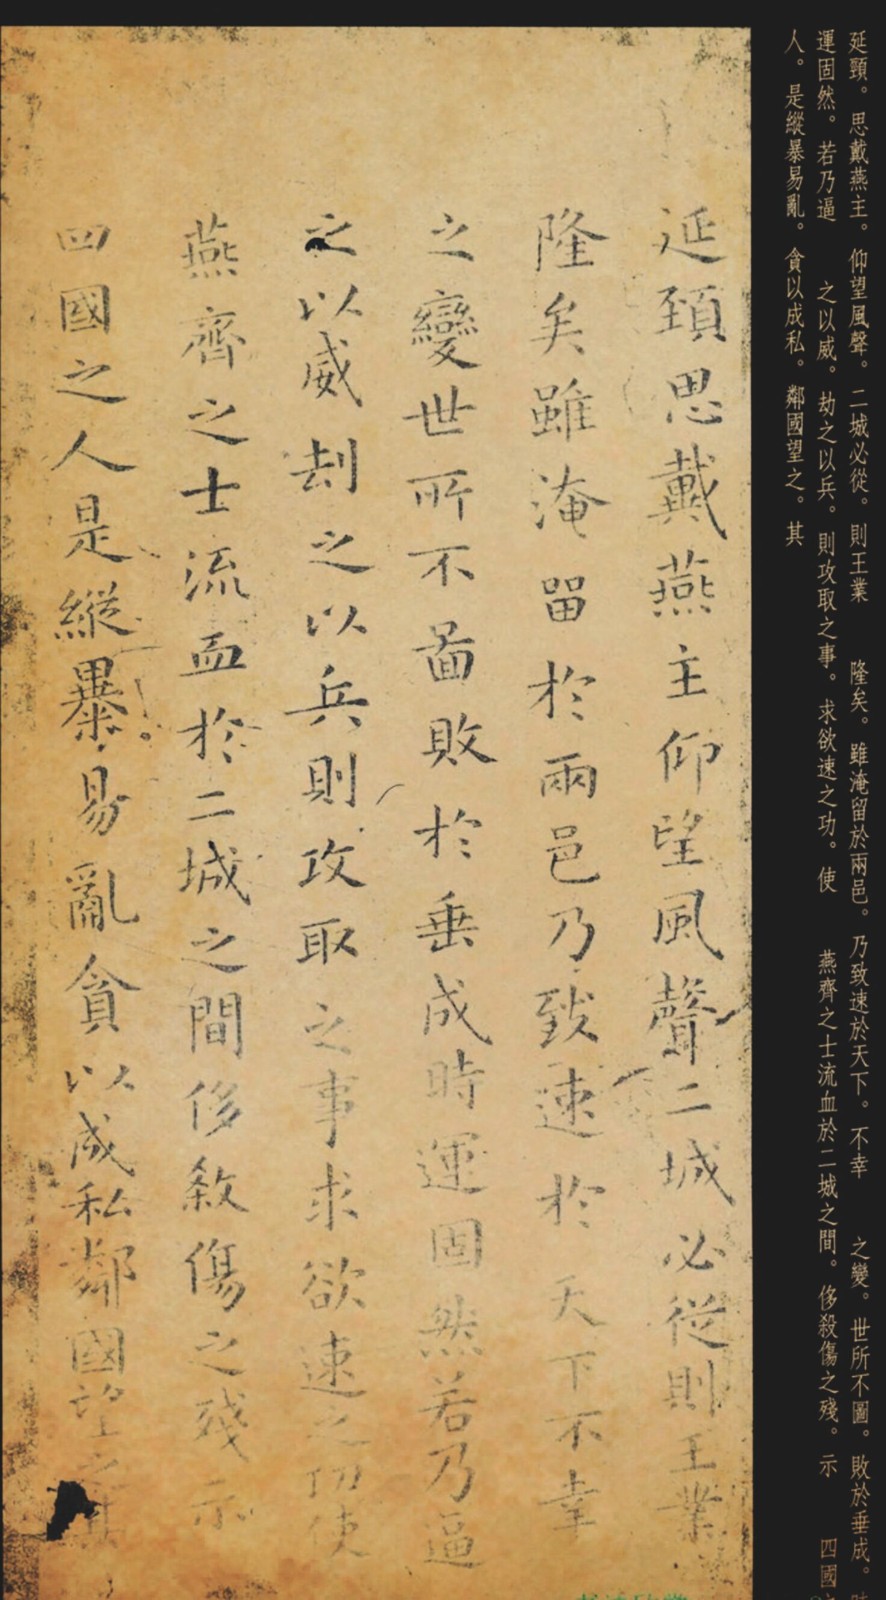 延頸。思戴燕主。仰望風聲。二城必從。則王業　隆矣。雖淹留於兩邑。乃致速於天下。不幸　之變。世所不圖。敗於垂成。時
運固然。若乃逼　之以威。劫之以兵。則攻取之事。求欲速之功。使　燕齊之士流血於二城之間。侈殺傷之殘。示　四國之
人。是縱暴易亂。貪以成私。鄰國望之。其
延頸思戴燕主仰望風聲二城必從則王業
隆矣雖淹留於兩邑乃致速於天下不幸
之變世所不圖敗於垂成時運固然若乃逼
之以威刧之以兵則攻取之事求欲速之功使
燕齊之士流血於二城之間侈敘傷之殘示
四國之人是縱暴易亂貪以成私鄰國望之其